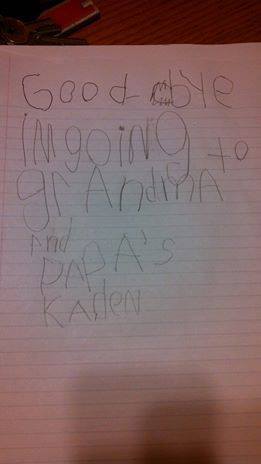 Good bye
iM goiNg to
grANdmA
ANd
PAPA's
KAdeN